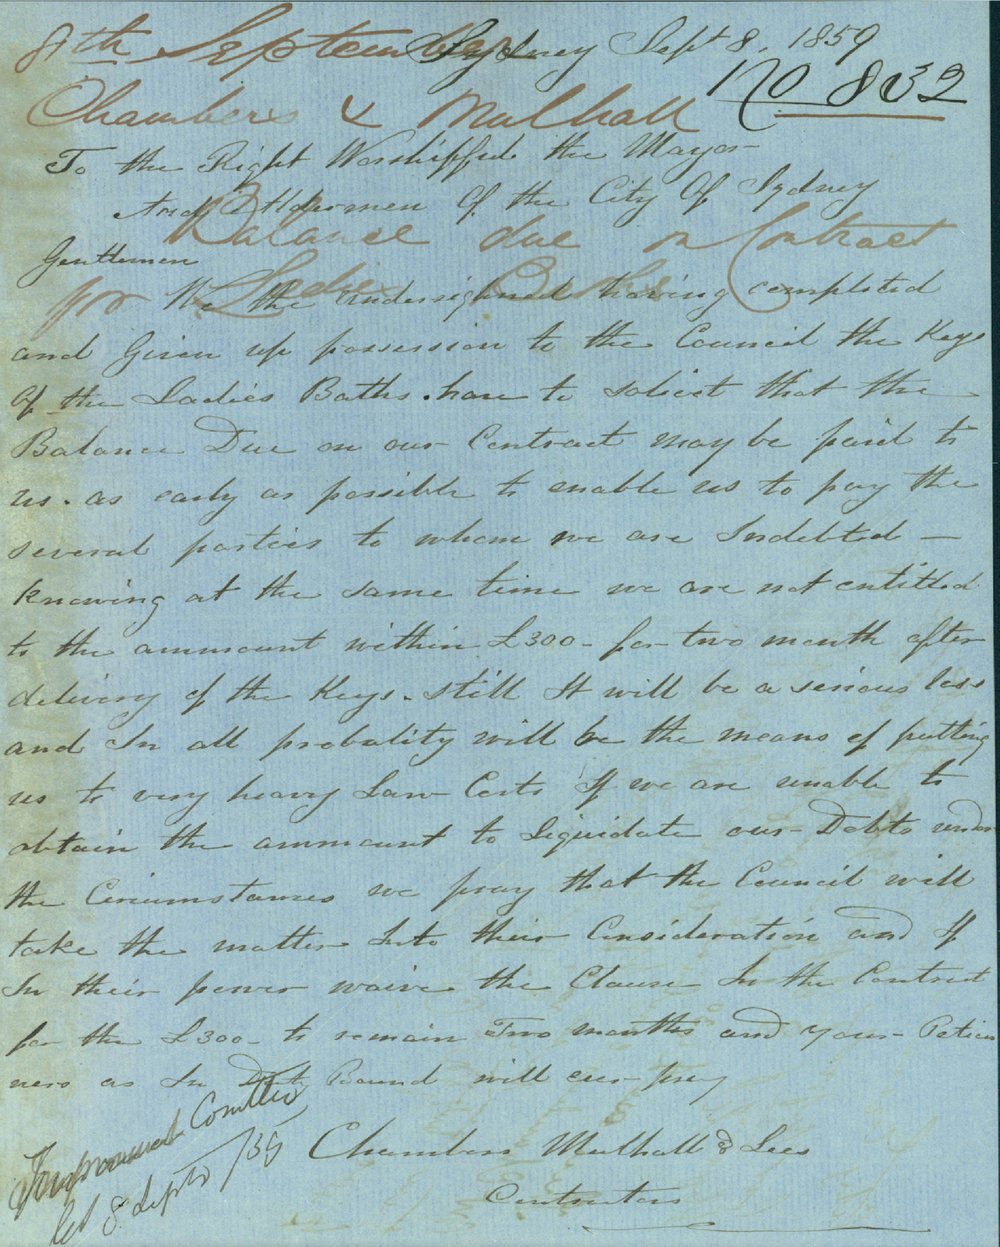 8th September
Sydney Sept 8, 1859
No 832
Chambers & Mulhall
To the Right Worshipful the Mayor
And Aldermen Of the City Of Sydney
Balance due on Contract
Gentlemen
for Ladies Baths
We the Undersigned having completed
and Given up possession to the Council the Keys
Of the Ladies Baths. have to solicit that the
Balance Due on our Contract may be paid to
us. as early as possible to enable us to pay the
several parties to whom we are Indebted —
knowing at the same time we are not entitled
to the ammount within £300 - for two month after
delivery of the Keys. still It will be a serious loss
and In all probality will be the means of putting
us to very heavy Law Costs If we are unable to
obtain the ammount to Liquidate our Debts under
the Circumstances we pray that the Council will
take the matter Into their Consideration and If
In their power waive the Clause In the Contract
for the £300 - to remain Two months and your Peticio
ners as In Duty Bound will ever pray
Chambers Mulhall & Lees
Contractors
Improvement Comttee
8 Septr /59